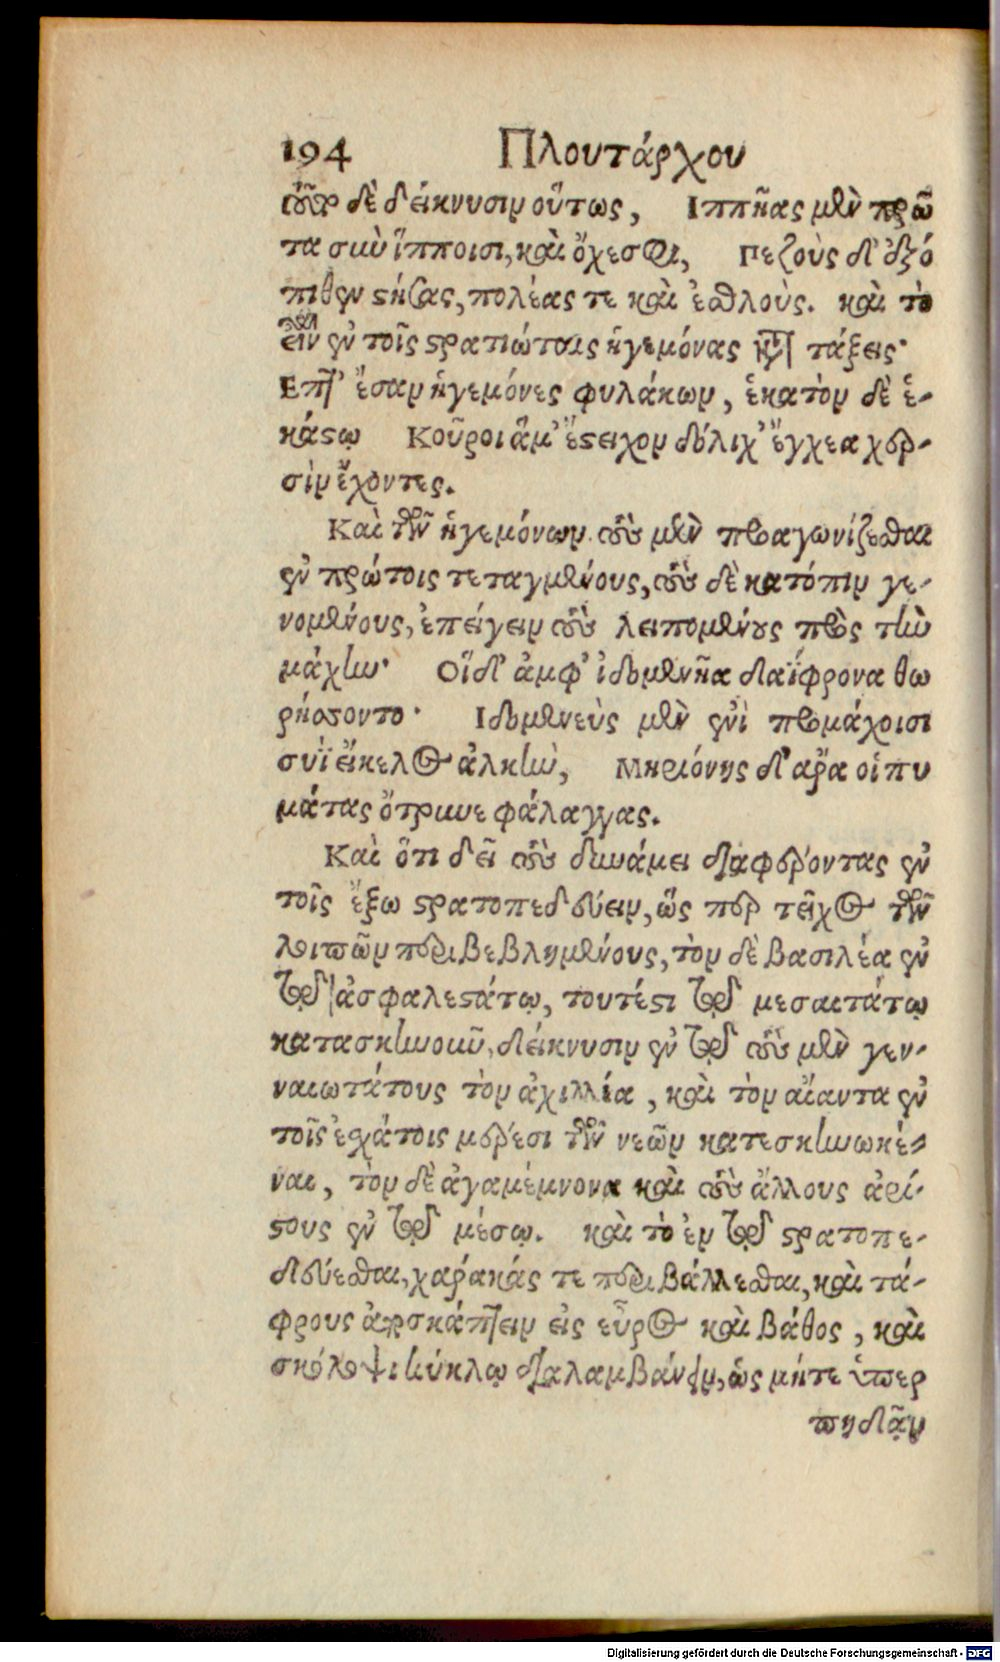 194 Πλουτάρχου
οὖν δὲ δείκνυσιν οὕτως, Ιππῆας μὲν πρῶ
τα σὺν ἵπποισι, καὶ ὄχεσφι, Πεζοὺς δ' ἐξό
πιθεν στῆσας, πολέας τε καὶ ἐσθλοὺς. καὶ τὸ
εἶναι ἐν τοῖς στρατιώταις ἡγεμόνας κατὰ τάξεις·
Επτ' ἔσαν ἡγεμόνες φυλάκων, ἑκατὸν δὲ ἑ-
κάστῳ Κοῦροι ἅμ' ἔστειχον δόλιχ' ἔγχεα χερ-
σὶν ἔχοντες.
Καὶ τῶν ἡγεμόνων τοὺς μὲν προαγωνίζεσθαι
ἐν πρώτοις τεταγμένους, τοὺς δὲ κατόπιν γε-
νομένους, ἐπείγειν τοὺς λειπομένους πρὸς τὴν
μάχην· Οἵ δ' ἀμφ' ἰδομενῆα δαΐφρονα θω
ρήσσοντο· Ιδομενεὺς μὲν ἐνὶ προμάχοισι
συῒ εἴκελος ἀλκὴν, Μηριόνης δ' ἄρα οἱ πυ
μάτας ὄτρυνε φάλαγγας.
Καὶ ὅτι δεῖ τοὺς δυνάμει διαφέροντας ἐν
τοῖς ἔξω στρατοπεδεύειν, ὥσπερ τεῖχος τῶν
λοιπῶν περιβεβλημένους, τὸν δὲ βασιλέα ἐν
τῷ ἀσφαλεστάτῳ, τουτέστι τῷ μεσαιτάτῳ
κατασκηνοῦν, δείκνυσιν ἐν τῷ τοὺς μὲν γεν-
ναιωτάτους τὸν ἀχιλλέα, καὶ τὸν αἴαντα ἐν
τοῖς ἐσχάτοις μέρεσι τῶν νεῶν κατεσκηνωκέ-
ναι, τὸν δὲ ἀγαμέμνονα καὶ τοὺς ἄλλους ἀρί-
στους ἐν τῷ μέσῳ. καὶ τὸ ἐν τῷ στρατοπε-
δεύεσθαι, χάρακάς τε περιβάλλεσθαι, καὶ τά-
φρους ἀποσκάπτειν εἰς εὖρος καὶ βάθος, καὶ
σκόλοψι κύκλῳ διαλαμβάνειν, ὡς μήτε ὑπερ
πηδᾷν
Digitalisierung gefördert durch die Deutsche Forschungsgemeinschaft - DFG